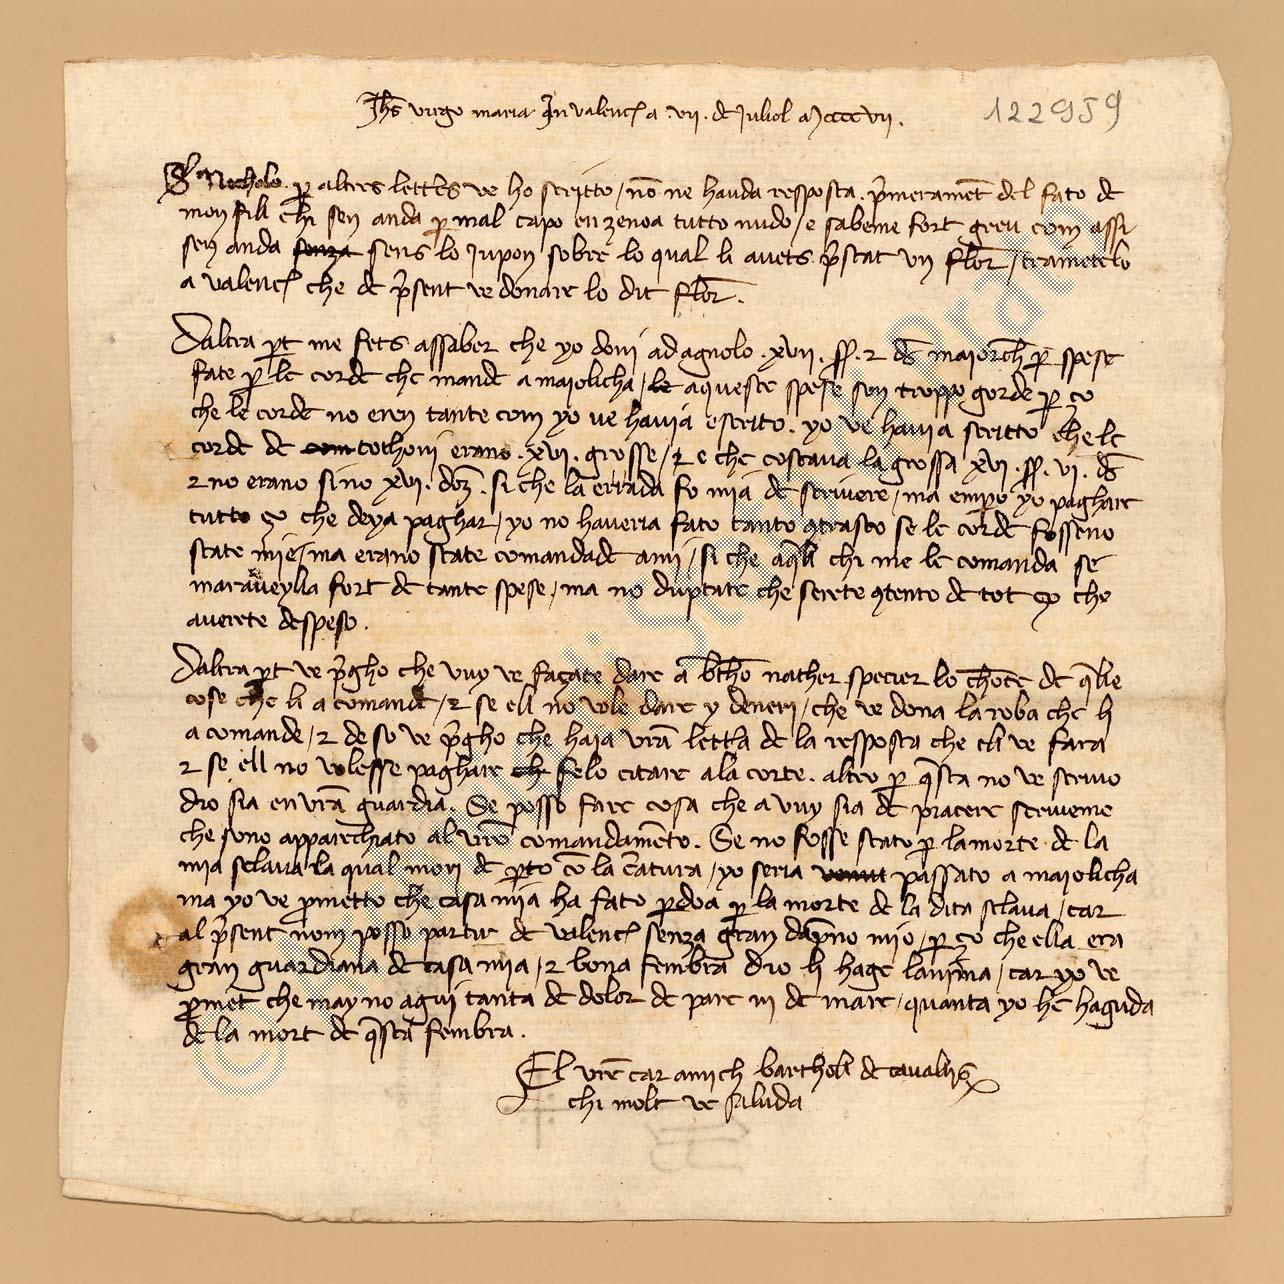 Jhs virgo maria In valencia a .vii. de Juliol Mccccvii.
122959
Sr Nicholo. per altres lettres ve ho scritto / no ne hauda resposta. primerament del fato de
mon fill chi sen anda per mal capo en zenoa tutto nudo / e sabeme fort greu com assi
sen anda senza sens lo Jupon sobre lo qual li auets prestat vn flor / trametelo
a valencia che de present ve donare lo dit flor.
Daltra part me fets assaber che yo doni ad agnolo .xvii. ss. 2 ds maiorchini per spese
fate per le corde che mande a maiolicha / le aqueste spese son troppo gorde per ço
che le corde no eren tante com yo ve hauia escrito. yo ve hauia scritto che le
corde de com cothoni erano .xvi. grosse / 2 e che costaua la grossa xvi. ss. vi. ds
2 no erano sino xvi. doz. si che la errada fo mia de scriuere / ma empero yo paghare
tutto ço che deya paghar / yo no haueria fato tanto contrasto se le corde fosseno
state mie / ma erano state comandade a mi / si che aquell chi me le comanda se
maraueylla fort de tante spese / ma no duptate che serete contento de tot ço che
auerete despeso.
Daltra part ve pregho che vuy ve façate dare a bertho nather specier lo chonte de quelle
cose che li a comande / 2 se ell no vole dare y deneri / che ve dona la roba che li
a comande / 2 de so ve pregho che haia vostra lettra de la resposta che ell ve fara
2 se ell no volesse paghare che felo citare a la corte. altro per questa no ve scriuo
dio sia en vostra guardia. Se posso fare cosa che a vuy sia de piacere scriueme
che sono apparechiato al vostro comandamento. Se no fosse stato per la morte de la
mia sclaua la qual mori de parto con la creatura / yo seria venut passato a maiolicha
ma yo ve prometto che casa mia ha fato perdoa per la morte de la dita sclaua / car
al present nom posso partir de valencia senza gran dapno mio / per ço che ella era
gran guardiana de casa mia / 2 bona fembra dio li hage lanima / car yo ve
promet che may no agui tanta de dolor de pare ni de mare / quanta yo he haguda
de la mort de questa fembra.
El vostre car amich bartholi de cauallis
chi molt ve saluda